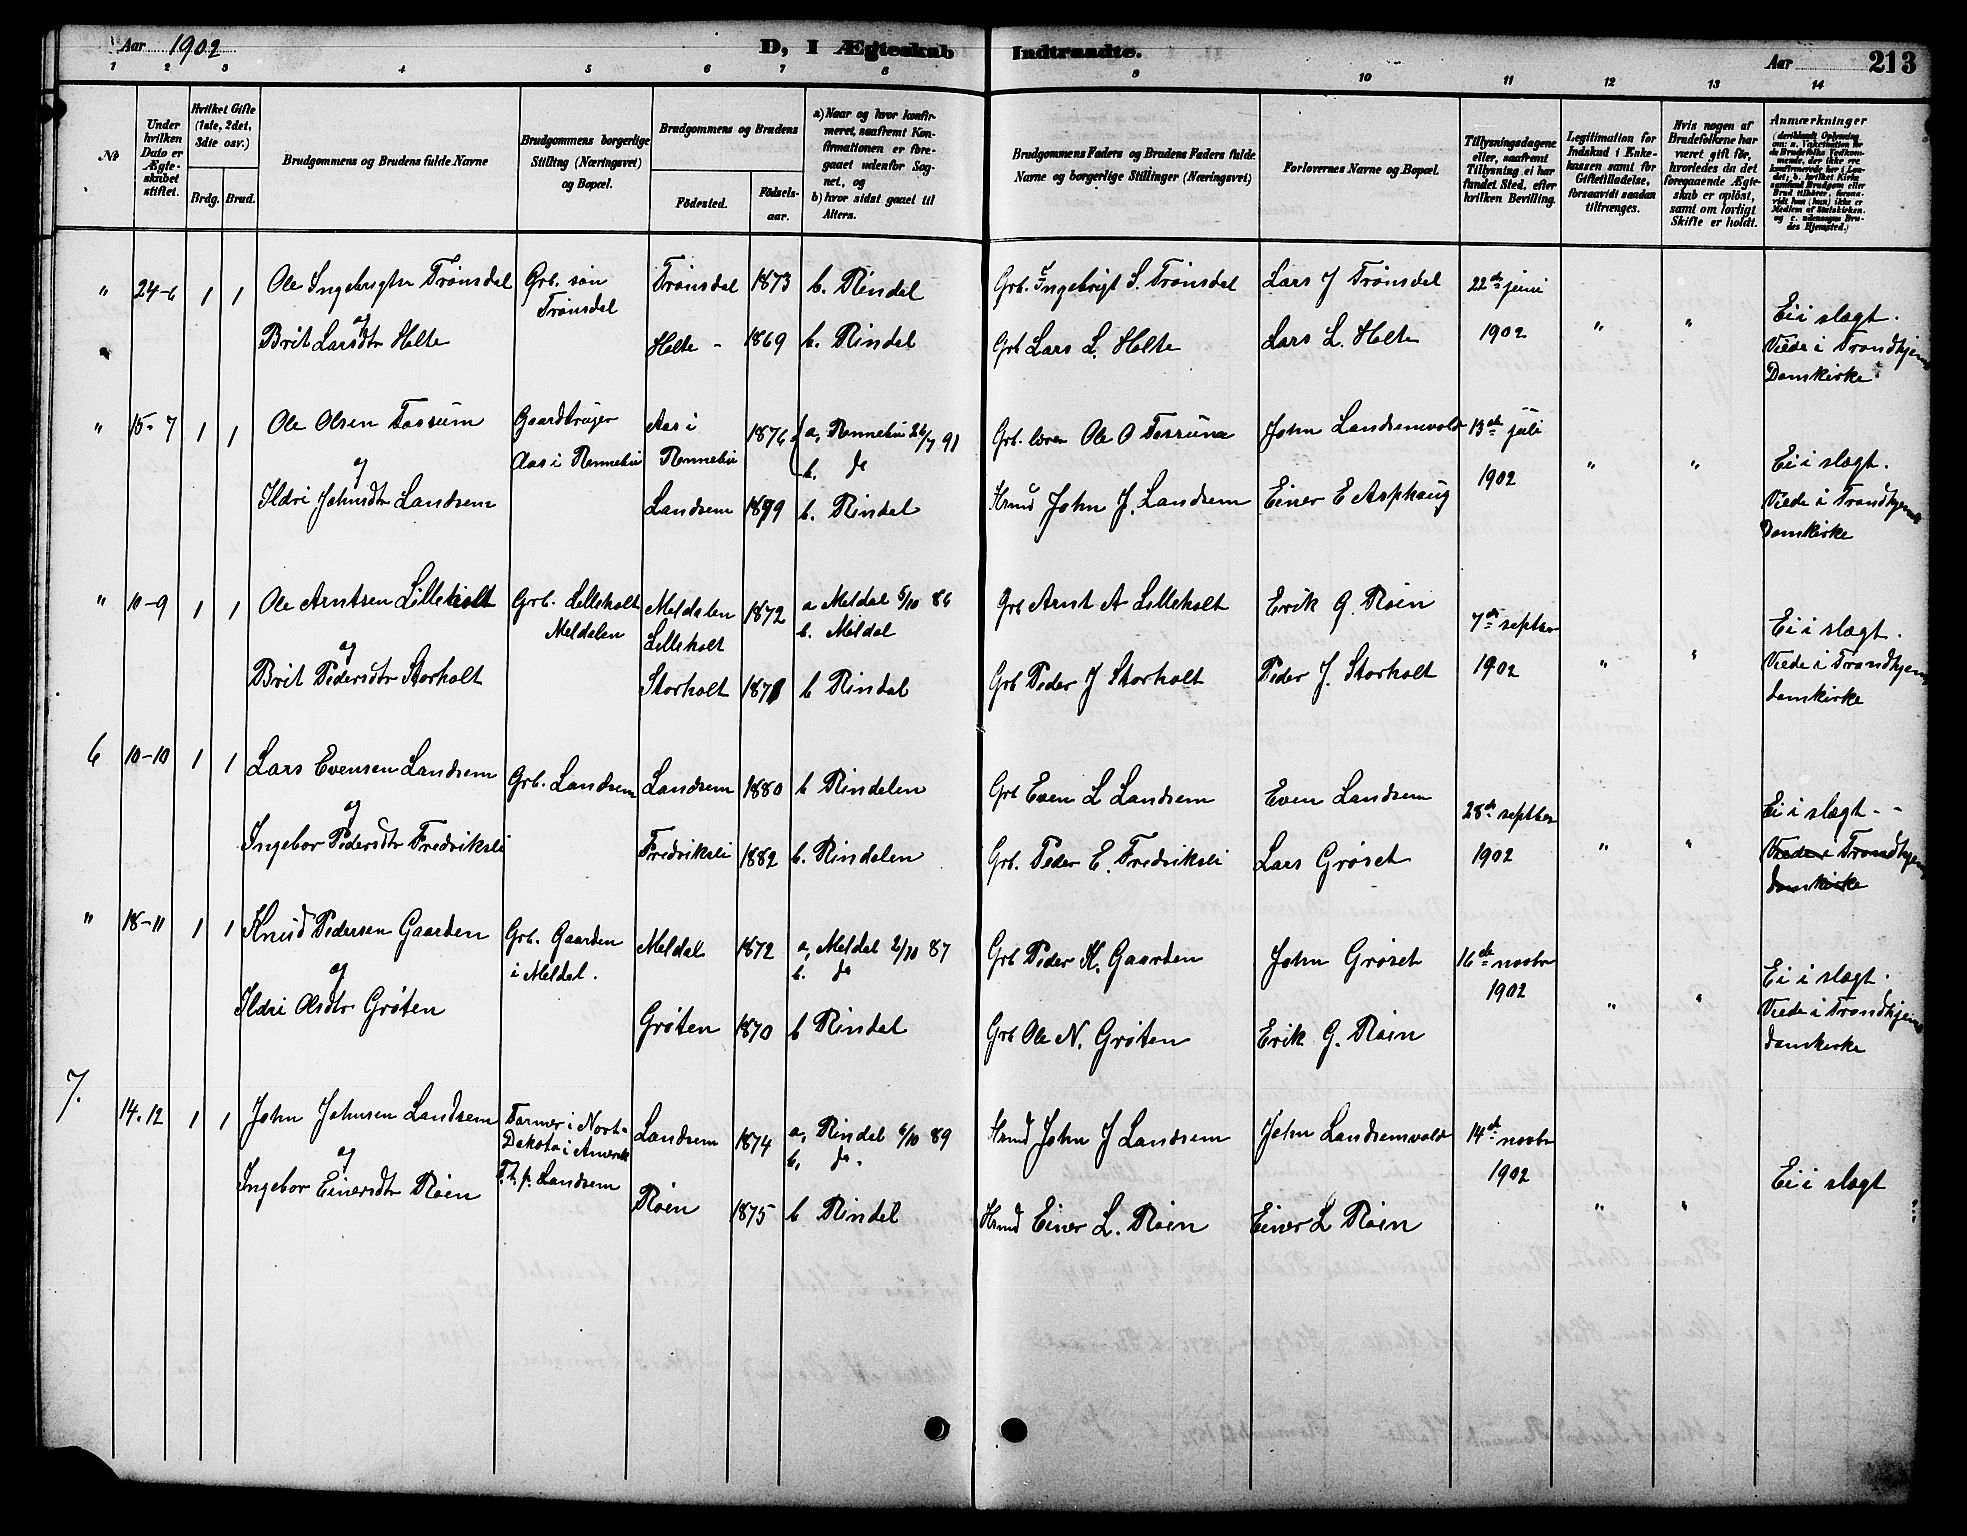 Aar 1902
D, I Ægteskab Indtraadte.
Aar
213
1 2 3 4 5 6 7 8 9 10 11 12 13 14
No
Under hvilken Dato er Ægteskabet stiftet.
Hvilket Gifte (1ste, 2det, 3die osv.)
Brdg. Brud.
Brudgommens og Brudens fulde Navne
Brudgommens borgerlige Stilling (Næringsvei) og Bopæl.
Brudgommens og Brudens
Födested.
Födselsaar.
a) Naar og hvor konfirmeret, saafremt Konfirmationen er foregaaet udenfor Sognet, og
b) hvor sidst gaaet til Alters.
Brudgommens Faders og Brudens Faders fulde Navne og borgerlige Stillinger (Næringsvei)
Forlovernes Navne og Bopæl.
Tillysningsdagene eller, saafremt Tillysning ei har fundet Sted, efter hvilken Bevilling.
Legitimation for Indskud i Enkekassen samt for Giftetilladelse, forsaavidt saadan tiltrænges.
Hvis nogen af Brudefolkene har været gift för, hvorledes da det foregaaende Ægteskab er oplöst, samt om lovligt Skifte er holdt.
Anmærkninger
" 24-6 1 1 Ole Ingebrigtsn Trönsdal Grb. sön Trönsdal Trönsdal 1873 b. Rindal Grb. Ingebrigt S. Trönsdal Lars J Trönsdal 22de juni
og
Brit Larsdtr Holte Holte - 1869 b. Rindal Grb Lars L. Holte Lars L. Holte 1902 " " Ei i slægt.
Viede i Trondhjems
Domkirke
" 15-7 1 1 Ole Olsen Fossum Gaardbruger Aas i Rennebu Aas i Rennebu 1876 a, Rennebu 26/7 91 Grb. Ole O Fossum John Landsemvold 13de juli
b. do
og
Ildri Johnsdtr Landsem Landsem 1879 b. Rindal Hmd John J. Landsem Einer E Asphaug 1902 " " Ei i slægt.
Viede i Trondhjems
Domkirke
" 10-9 1 1 Ole Arntsen Lilleholt Grb. Lilleholt Meldalen Meldalen Lilleholt 1872 a Meldal 5/10 86 Grb Arnt A Lilleholt Erik G. Röen 7de septbr
b. Meldal
og
Brit Pedersdtr Storholt Storholt 1878 b Rindal Grb Peder J Storholt Peder J. Storholt 1902 " " Ei i slægt.
Viede i Trondhjems
domkirke
6 10-10 1 1 Lars Evensen Landsem Grb. Landsem Landsem 1880 b Rindalen Grb Even L Landsem Even Landsem 28de septbr
og
Ingebor Pedersdtr Fredriksli Fredriksli 1882 b. Rindalen Grb. Peder E. Fredriksli Lars Gröset 1902 " " Ei i slægt. -
Viede i Trondhjems
domkirke
" 18-11 1 1 Knud Pedersen Gaarden Grb. Gaarden i Meldal. Meldal 1872 a, Meldal 2/10 87 Grb Peder K. Gaarden John Gröset 16de novbr
b. do
og
Ildri Olsdtr Gröten Gröten 1870 b Rindal Grb Ole N. Gröten Erik G. Röen 1902 " " Ei i slægt.
Viede i Trondhjems
domkirke
7. 14-12 1 1 John Johnsen Landsem Farmer i Nort-Dakota i Amerik T. t. p. Landsem Landsem 1874 a, Rindal 6/10 89 Hmd John J Landsem John Landsemvold 14de novbr
b, do.
og
Ingebor Einersdtr Röen Röen 1875 b Rindal Hmd Einer L. Röen Einer L Röen 1902 " " Ei i slægt